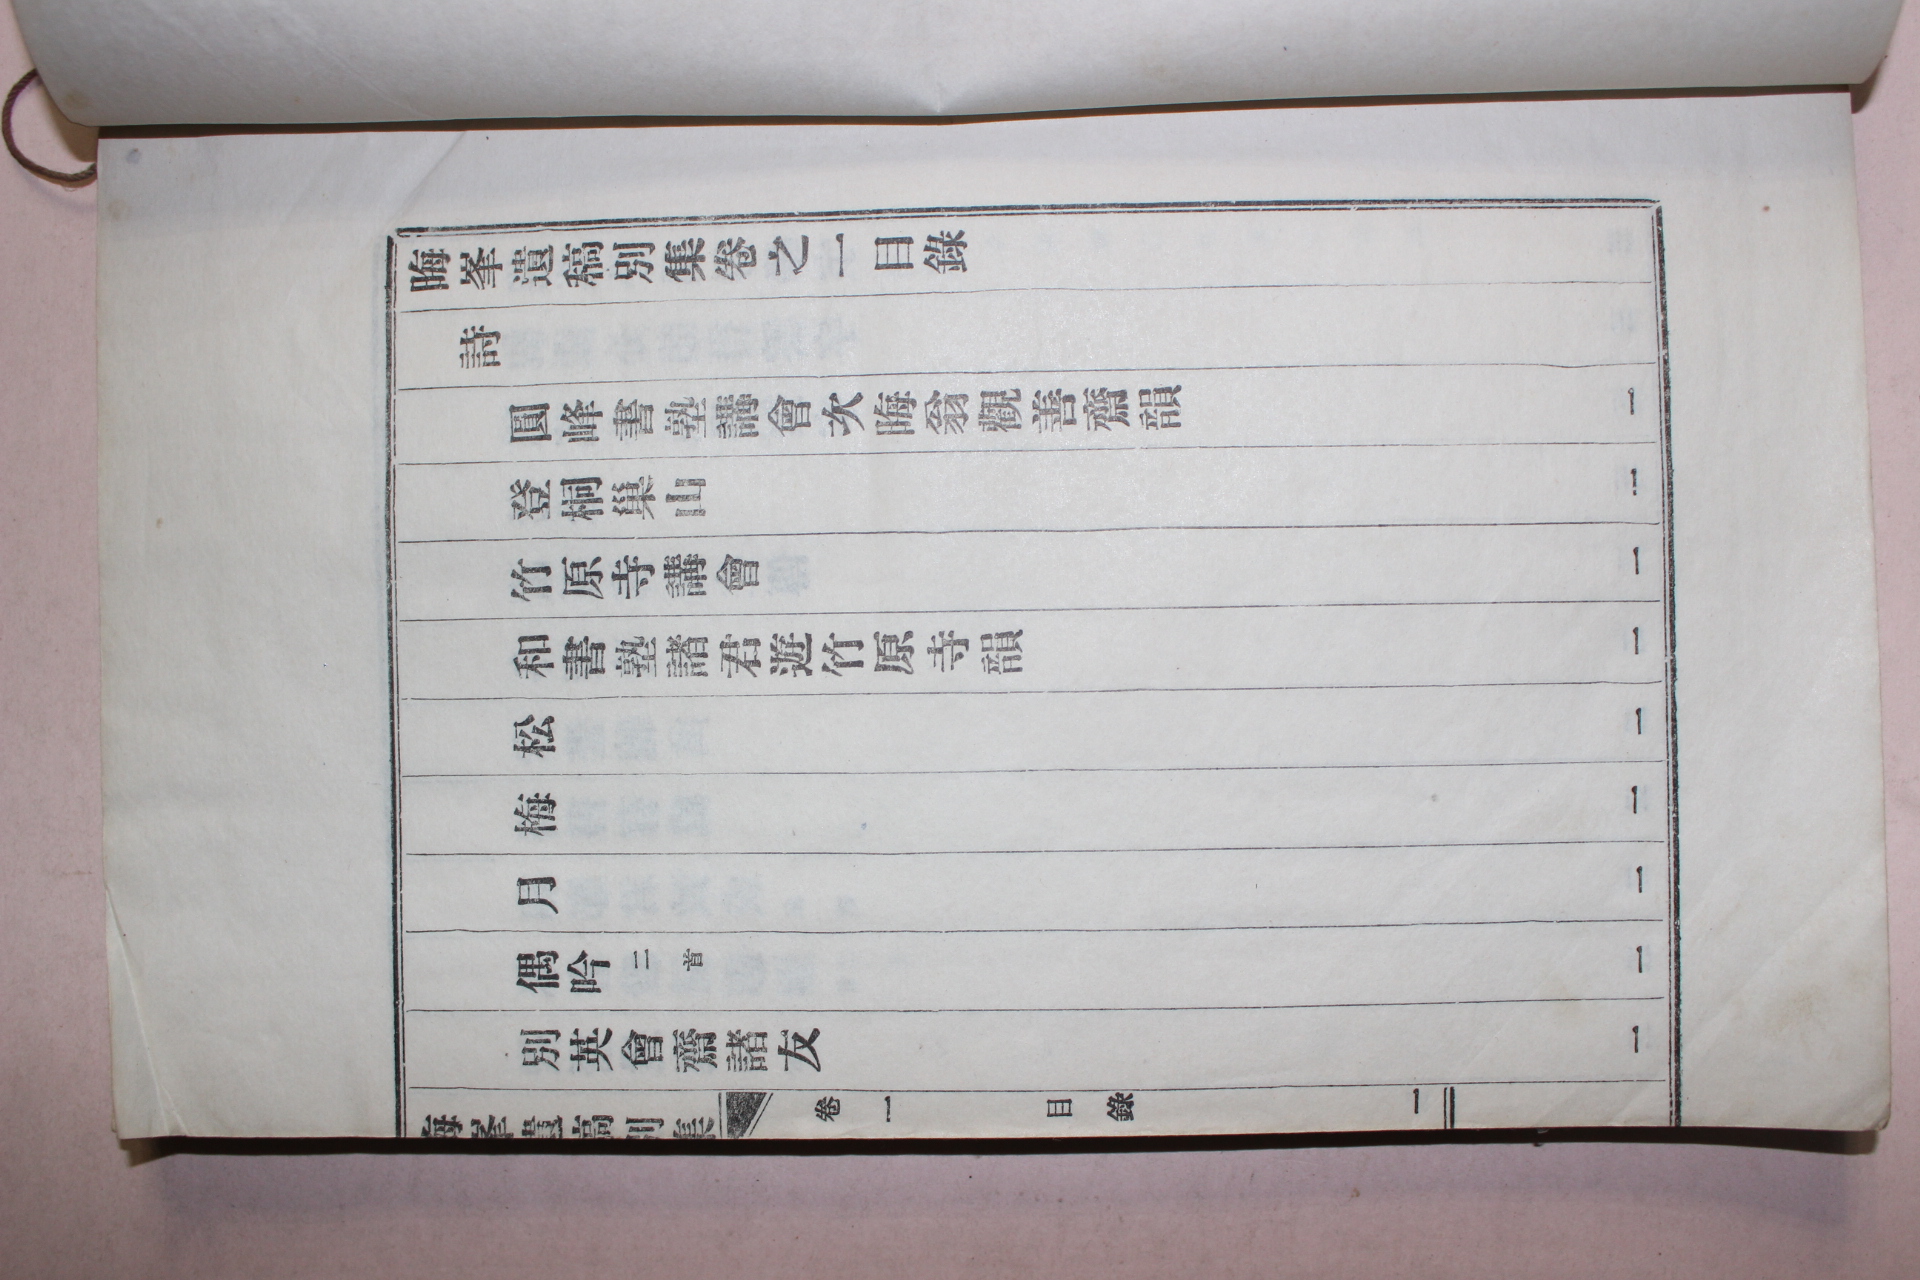 晦峯遺稿別集卷之一目錄
詩
圓峰書塾講會次晦翁觀善齋韻 一
登桐巢山 一
竹原寺講會 一
和書塾諸君遊竹原寺韻 一
松 一
梅 一
月 一
偶吟 二首 一
別英會齋諸友 一
晦峯遺稿別集 卷一 目錄 一